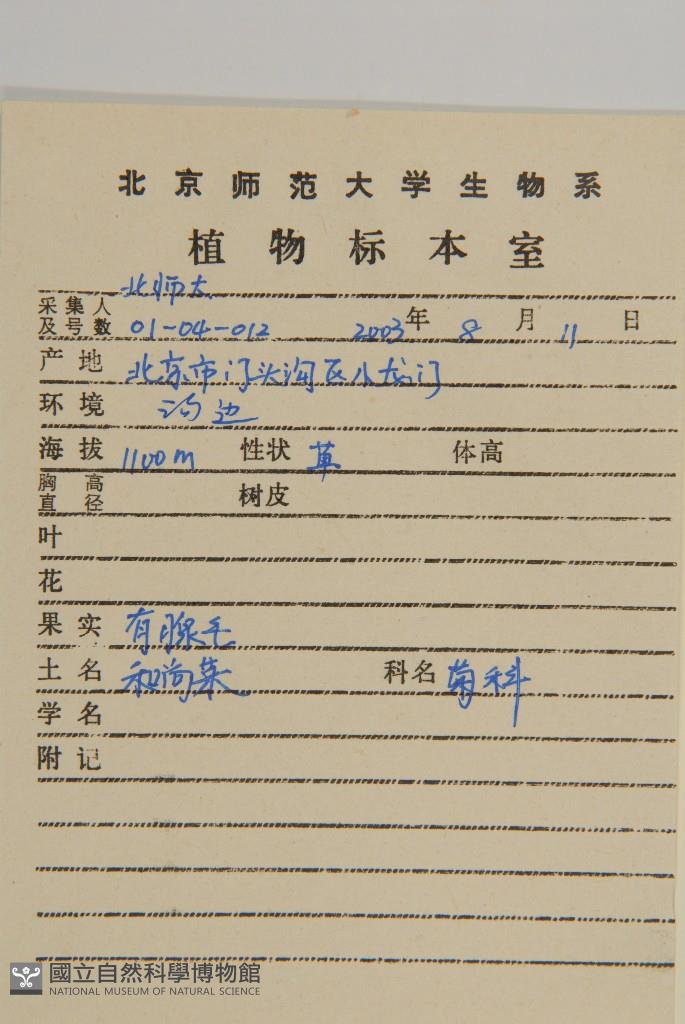 北京师范大学生物系
植物标本室
采集人 北师大
及号数 01-04-012 2003年 8月 11日
产地 北京市门头沟区小龙门
环境 沟边
海拔 1100m 性状 草 体高
胸高
直径 树皮
叶
花
果实 有腺毛
土名 和尚菜 科名 菊科
学名
附记
國立自然科學博物館
NATIONAL MUSEUM OF NATURAL SCIENCE